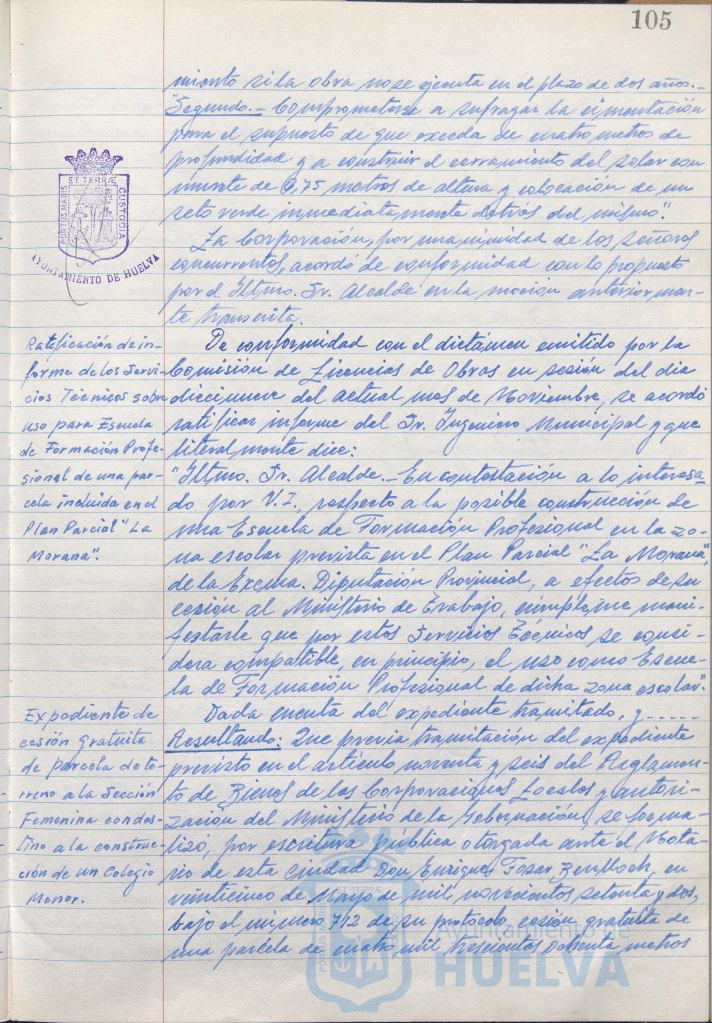 105
miento si la obra no se ejecuta en el plazo de dos años.-
"Segundo.- Comprometerse a sufragar la cimentación
para el supuesto de que exceda de cuatro metros de
profundidad y a construir el cerramiento del solar con
murete de 0,75 metros de altura y colocación de un
seto verde inmediatamente detrás del mismo".
La Corporación, por unanimidad de los señores
concurrentes, acordó de conformidad con lo propuesto
por el Iltmo. Sr. Alcalde en la moción anteriormen-
te transcrita.
PORTUS MARIS ET TERRÆ CUSTODIA
AYUNTAMIENTO DE HUELVA
Ratificación de in-
forme de los Servi-
cios Técnicos sobre
uso para Escuela
de Formación Profe-
sional de una par-
cela incluida en el
Plan Parcial "La
Morana".
De conformidad con el dictamen emitido por la
Comisión de Licencias de Obras en sesión del dia
diecinueve del actual mes de Noviembre, se acordó
ratificar informe del Sr. Ingeniero Municipal y que
literalmente dice:
"Iltmo. Sr. Alcalde.- En contestación a lo interesa-
do por V.I., respecto a la posible construcción de
una Escuela de Formación Profesional en la zo-
na escolar prevista en el Plan Parcial "La Morana",
de la Excma. Diputación Provincial, a efectos de su
cesión al Ministerio de Trabajo, cúmpleme mani-
festarle que por estos Servicios Técnicos se consi-
dera compatible, en principio, el uso como Escue-
la de Formación Profesional de dicha zona escolar".
Expediente de
cesión gratuita
de parcela de te-
rreno a la Sección
Femenina con des-
tino a la construc-
ción de un Colegio
Menor.
Dada cuenta del expediente tramitado, y.....
Resultando: Que previa tramitación del expediente
previsto en el artículo noventa y seis del Reglamen-
to de Bienes de las Corporaciones Locales y autori-
zación del Ministerio de la Gobernación, se forma-
lizó, por escritura pública otorgada ante el Nota-
rio de esta Ciudad Don Enrique Fosar Benlloch, en
veinticinco de Mayo de mil novecientos setenta y dos,
bajo el número 712 de su protocolo, cesión gratuita de
una parcela de cuatro mil trescientos ochenta metros
Ayuntamiento de
HUELVA